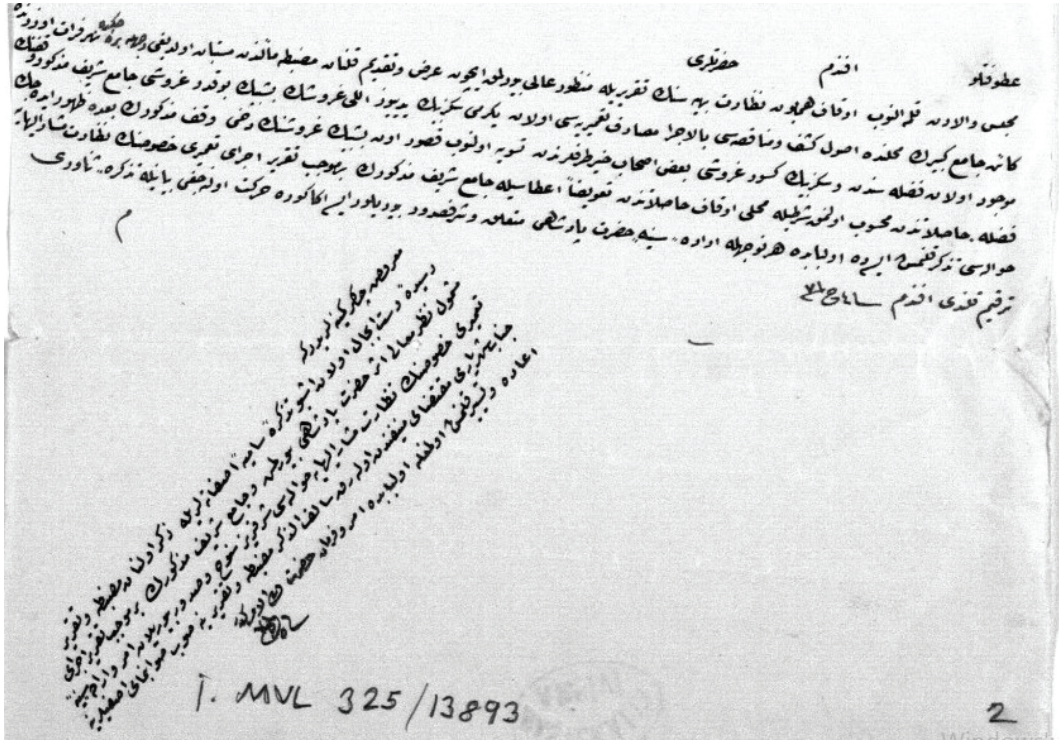 عطوفتلو افندم حضرتلری
مجلس والادن قلمه النوب اوقاف همایون نظارت بهیه سنك تقریریله منظور عالی بیورلمق ایچون عرض وتقدیم قلنان مضبطه مآلندن مستبان اولدیغی وجهله نهر فرات اوزرنده
كائن جامع كبیرك محلنده اصول كشف ومناقصه سی بالاجرا مصارف تعمیریه سی اولان یكرمی سكزبیك یدیوز اللی غروشك بشبیك بوقدر غروشی جامع شریف مذكور وقفنك
موجود اولان فضله سندن وسكزبیك كسور غروشی بعض اصحاب خیر طرفلرندن تسویه اولنوب قصور اون بشبیك غروشنك دخی وقف مذكورك بعده ظهور ایده جك
فضله حاصلاتندن محسوب اولنمق شرطیله محلی اوقاف حاصلاتندن تعویضاً اعطاسیله جامع شریف مذكورك برموجب تقریر اجرای تعمیری خصوصنك نظارت مشار الیهایه
حواله سی تذكر قلنمش ایسه ده اولبابده هر نوجهله اراده سنیه حضرت پادشاهی متعلق وشرفصدور بیوریلور ایسه اكا كوره حركت اولنه جغی بیانیله تذكره ثناوری
ترقیم قلندی افندم
معروض چاكر كمینه لریدركه
رسیده دست اجلال اولان اشبو تذكره سامیه آصفانه لریله ذكر اولنان مضبطه وتقریر
مشمول نظر معالی اثر حضرت پادشاهی بیورلمش وجامع شریف مذكورك برموجب تقریر اجرای
تعمیری خصوصنك نظارت مشار الیهایه حواله سی شرفریز سنوح وصدور بیوریلان امر واراده سنیه
جناب شهریاری مقتضای منیفندن اولرق سالف الذكر مضبطه وتقریر ینه صوب صوابنمای آصفیلرینه
اعاده وتسییر قلنمش اولمغله اولبابده امر وفرمان حضرت ولی الامركدر
I. MVL 325/13893
2